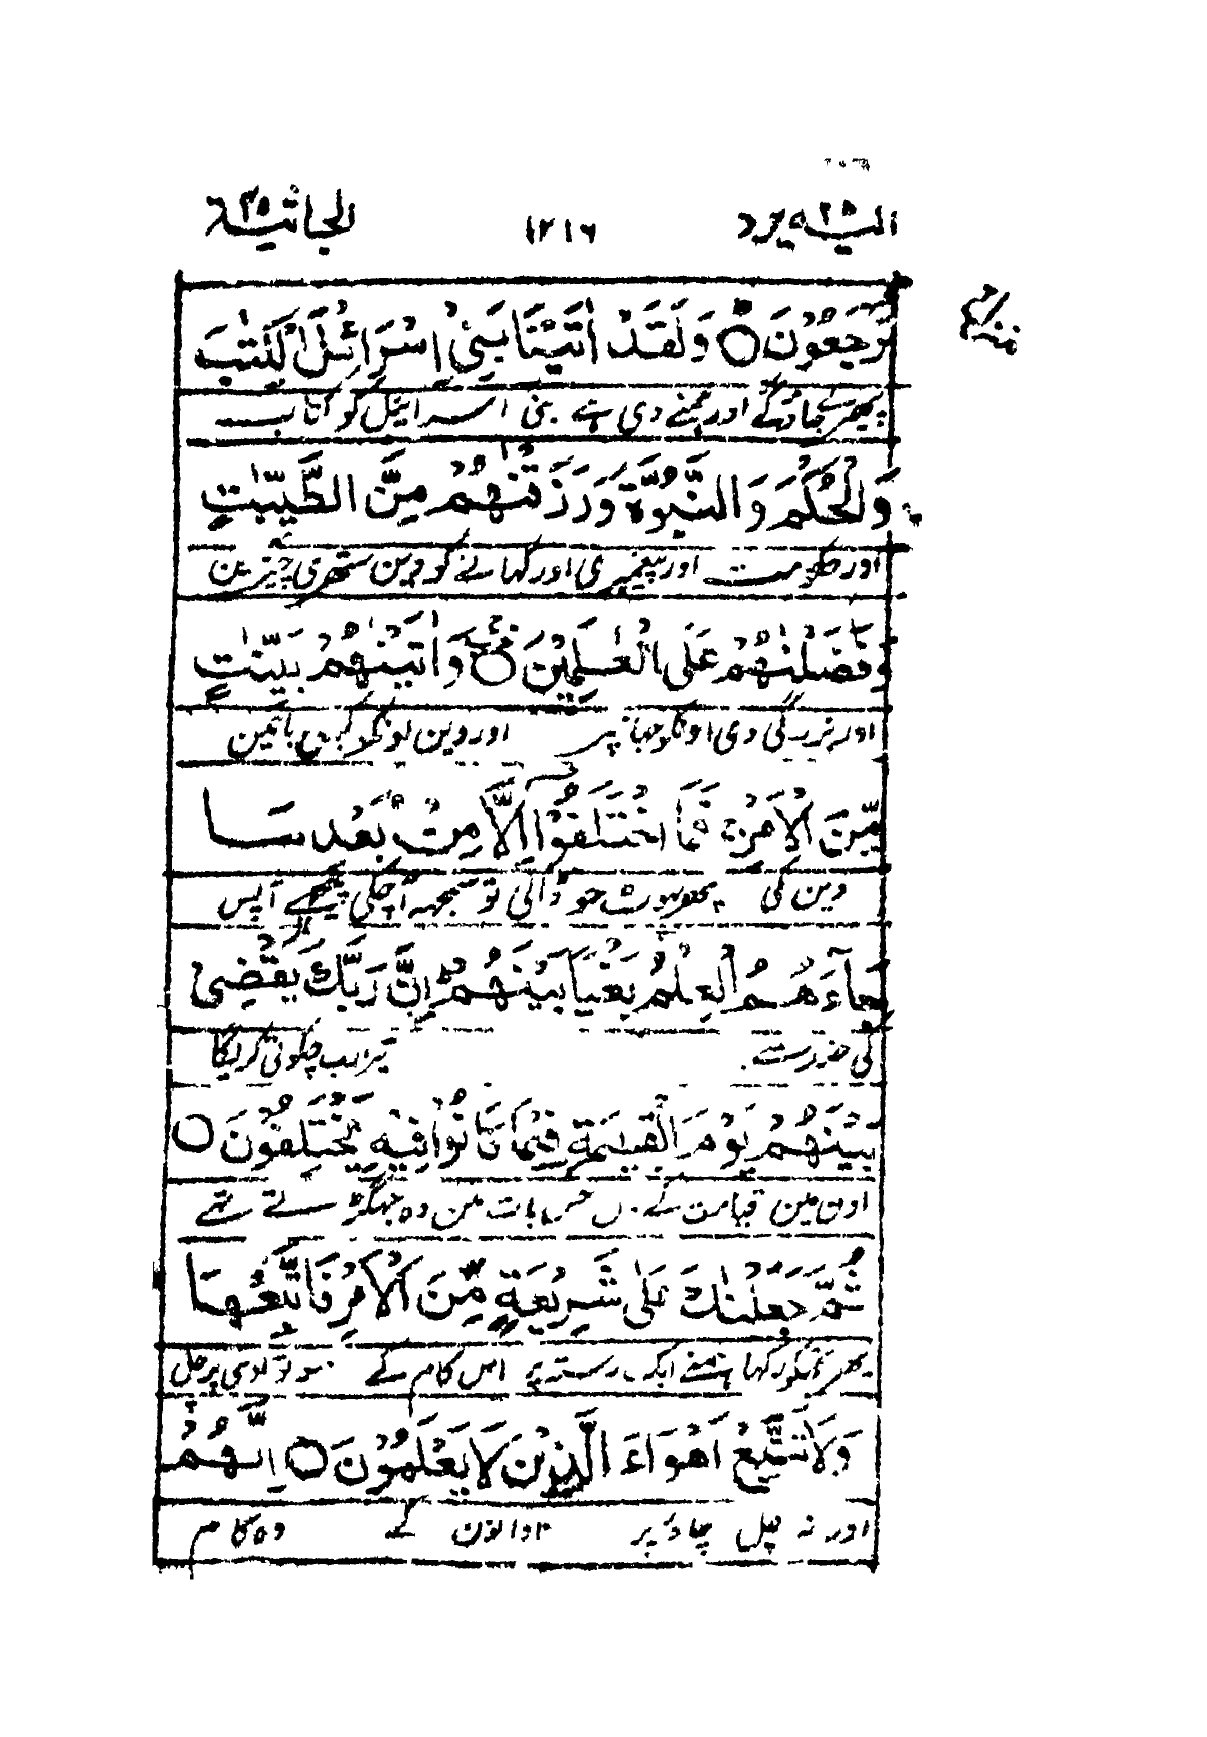 الیه یرد ۲۵ ۱۲۱۶ الجاثیة ۴۵
تُرْجَعُوْنَ ○ وَلَقَدْ اٰتَيْنَا بَنِيْ اِسْرَآئِيْلَ الْكِتٰبَ
پھیرے جاؤگے اور ہمنے دی ہے بنی اسرائیل کو کتاب
وَالْحُكْمَ وَالنُّبُوَّةَ وَرَزَقْنٰهُمْ مِّنَ الطَّيِّبٰتِ
اور حکومت اور پیغمبری اور کھانے کو دین ستھری چیزین
وَفَضَّلْنٰهُمْ عَلَى الْعٰلَمِيْنَ ○ وَاٰتَيْنٰهُمْ بَيِّنٰتٍ
اور بزرگی دی اونکو جہان پر اور دین اونکو کہلی باتین
مِّنَ الْاَمْرِ فَمَا اخْتَلَفُوْٓا اِلَّا مِنْۢ بَعْدِ مَا
دین کی پھر پھوٹ جو ڈالی تو سمجھہ آچکی پیچھے آپس
جَآءَهُمُ الْعِلْمُ بَغْيًۢا بَيْنَهُمْ اِنَّ رَبَّكَ يَقْضِيْ
کی ضد سے تیرا رب چکوتی کریگا
بَيْنَهُمْ يَوْمَ الْقِيٰمَةِ فِيْمَا كَانُوْا فِيْهِ يَخْتَلِفُوْنَ ○
اون مین قیامت کے دن جس بات مین وہ جھگڑتے تھے
ثُمَّ جَعَلْنٰكَ عَلٰى شَرِيْعَةٍ مِّنَ الْاَمْرِ فَاتَّبِعْهَا
پھر تجکو رکھا ہمنے ایک رستہ پر اس کام کے سو تو اوسی پر چل
وَلَا تَتَّبِعْ اَهْوَآءَ الَّذِيْنَ لَا يَعْلَمُوْنَ ○ اِنَّهُمْ
اور نہ چل چاؤ پر نادانون کے وہ کام